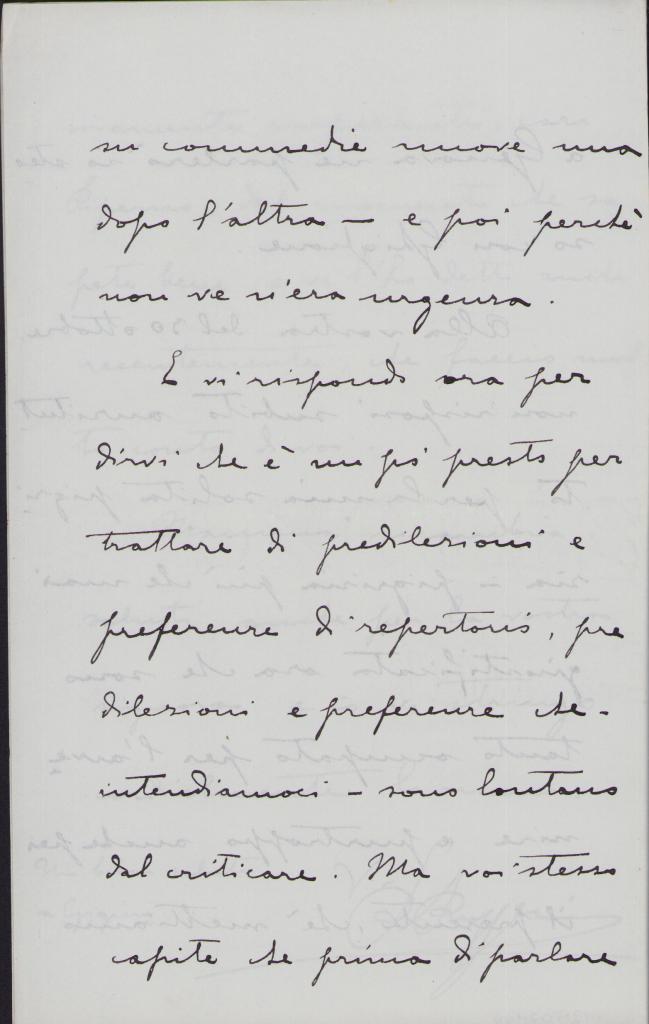 su commedie nuove una
dopo l'altra — e poi perchè
non ve n'era urgenza.
E vi rispondo ora per
dirvi che è un pò presto per
trattare di predilezioni e
preferenze di repertorio, pre
dilezioni e preferenze che -
intendiamoci - sono lontano
dal criticare. Ma voi stesso
capite che prima di parlare